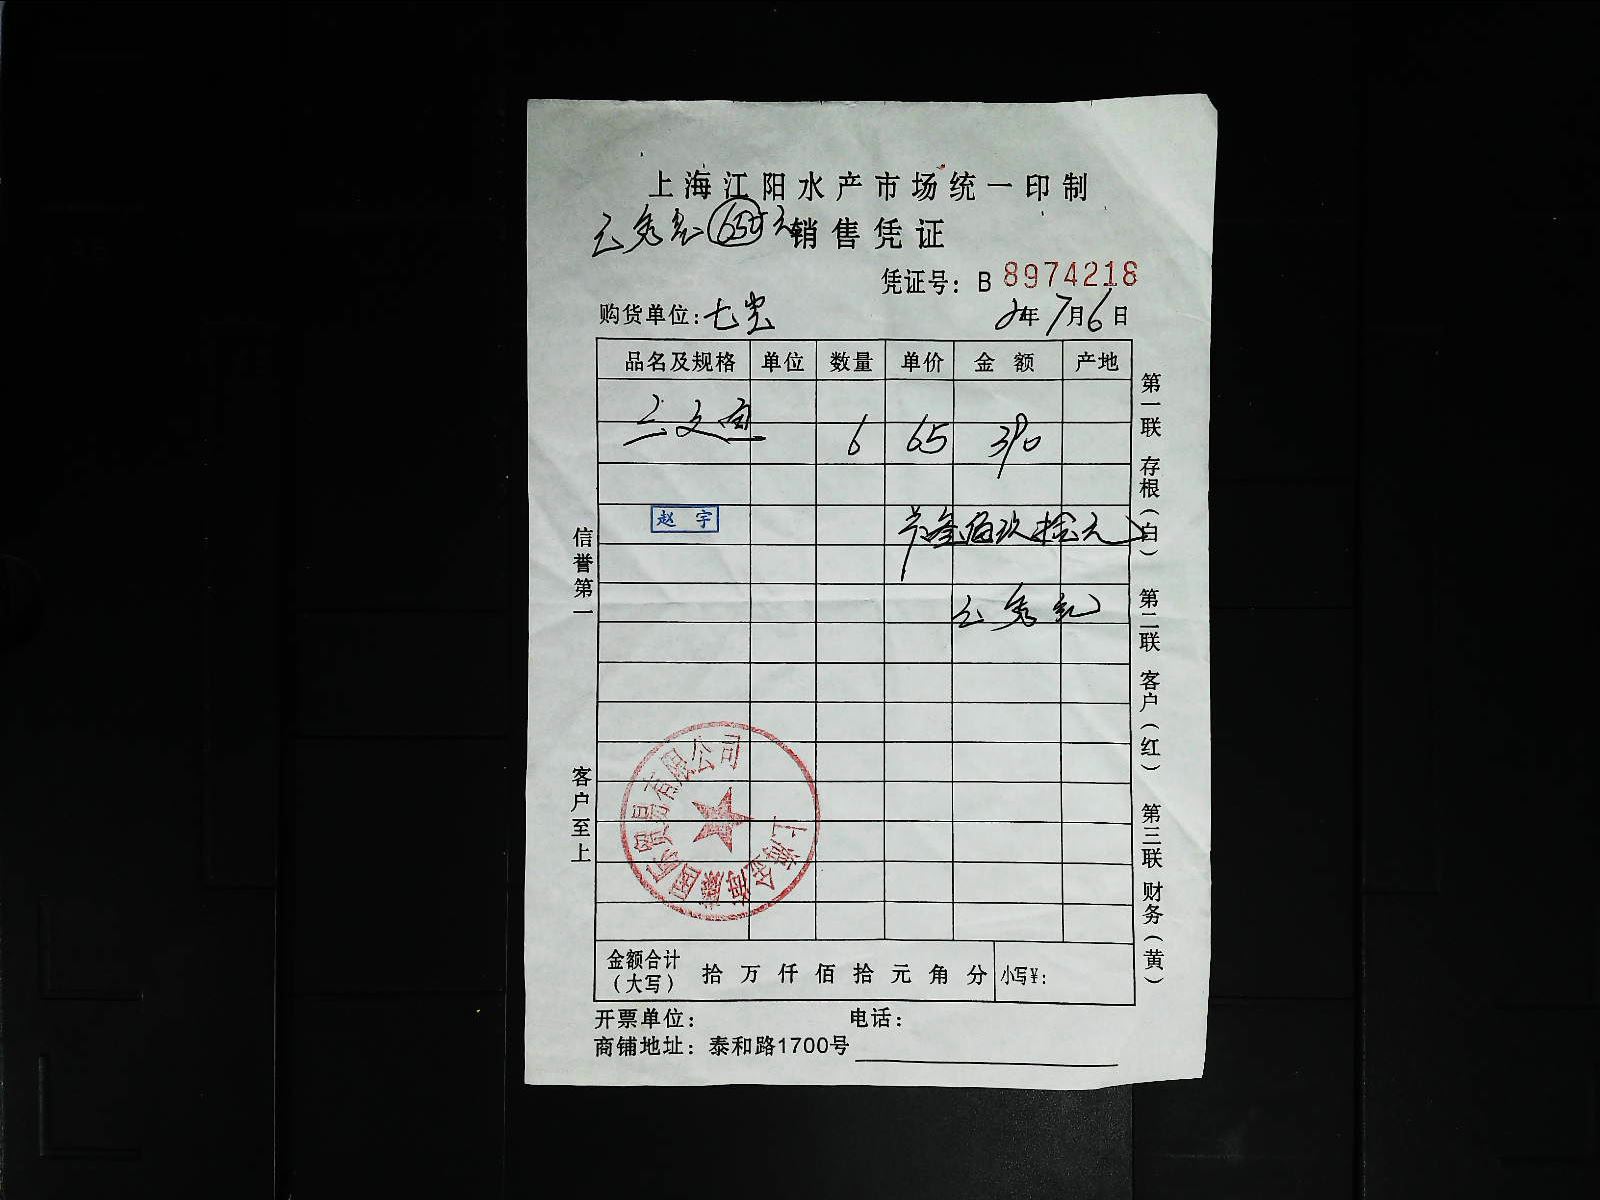 上海江阳水产市场统一印制
销售凭证
凭证号：B 8974218
购货单位：七宝 年7月6日
品名及规格 单位 数量 单价 金额 产地
三文鱼 6 65 390
赵宇
共叁佰玖拾元
上海金海藤国际贸易有限公司
金额合计（大写） 拾万仟佰拾元角分 小写¥：
开票单位： 电话：
商铺地址：泰和路1700号
信誉第一 客户至上
第一联 存根（白） 第二联 客户（红） 第三联 财务（黄）